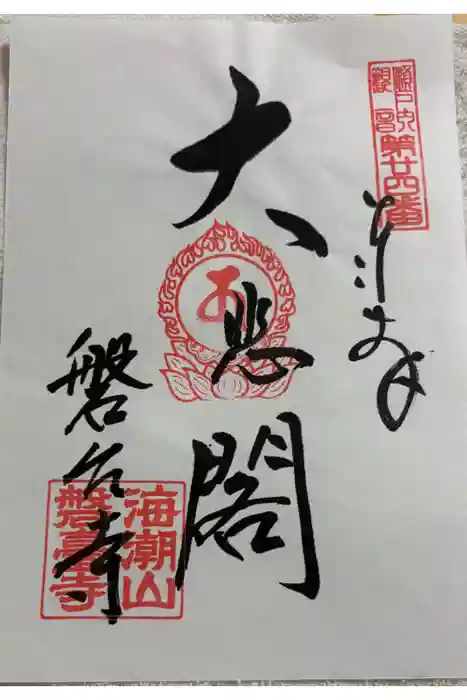 瀬戸内
觀音
第廿四番
奉拝
大悲閣
磐台寺
海潮山
磐臺寺